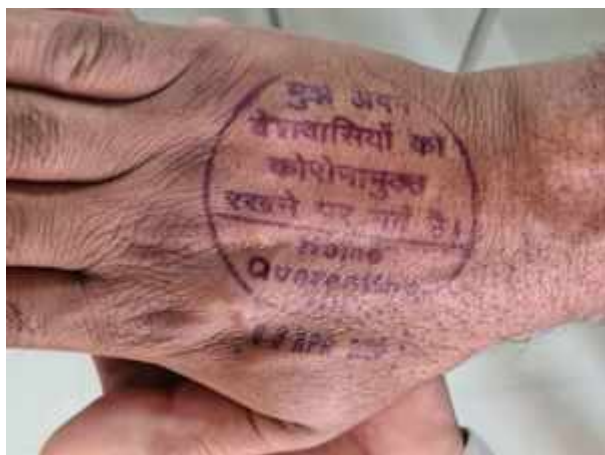 मुझे अपने
देशवासियों को
कोरोनामुक्त
रखने पर गर्व है।
Home
Quarantine
APR